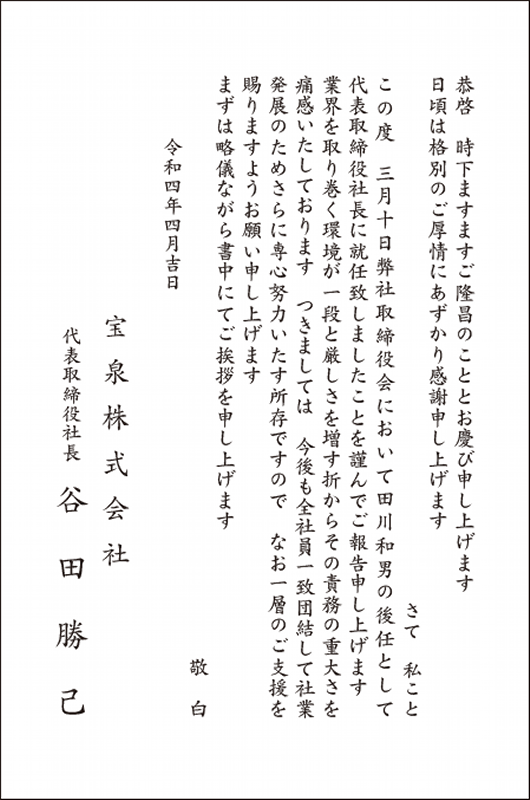 恭啓　時下ますますご隆昌のこととお慶び申し上げます
日頃は格別のご厚情にあずかり感謝申し上げます
さて　私こと
この度　三月十日弊社取締役会において田川和男の後任として
代表取締役社長に就任致しましたことを謹んでご報告申し上げます
業界を取り巻く環境が一段と厳しさを増す折からその責務の重大さを
痛感いたしております　つきましては　今後も全社員一致団結して社業
発展のためさらに専心努力いたす所存ですので　なお一層のご支援を
賜りますようお願い申し上げます
まずは略儀ながら書中にてご挨拶を申し上げます
敬白
令和四年四月吉日
宝泉株式会社
代表取締役社長　谷田勝己